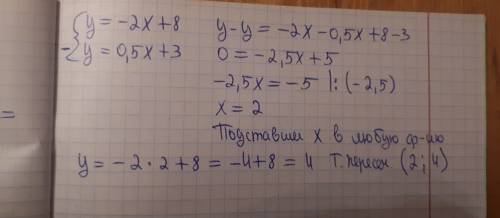 y = -2x + 8
- y = 0,5x + 3
y - y = -2x - 0,5x + 8 - 3
0 = -2,5x + 5
-2,5x = -5 |: (-2,5)
x = 2
Подставим x в любую ф-ию
y = -2 · 2 + 8 = -4 + 8 = 4 т. пересеч (2; 4)
=